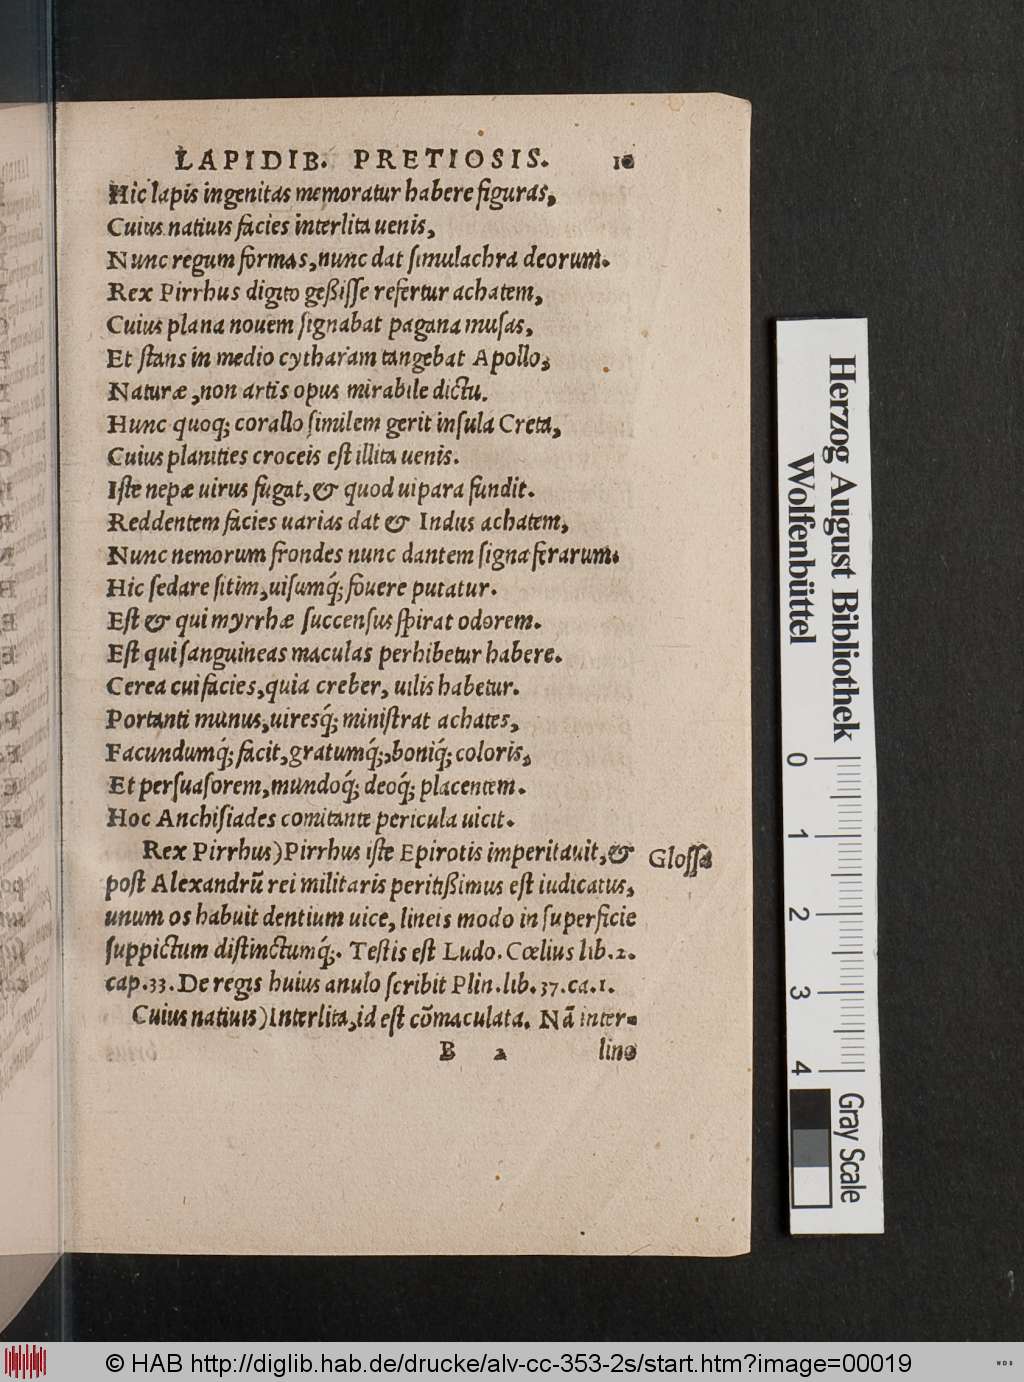 LAPIDIB. PRETIOSIS. 10
Hic lapis ingenitas memoratur habere figuras,
Cuius natiuis facies interlita uenis,
Nunc regum formas, nunc dat simulachra deorum.
Rex Pirrhus digito geßisse refertur achatem,
Cuius plana nouem signabat pagana musas,
Et stans in medio cytharam tangebat Apollo,
Naturæ, non artis opus mirabile dictu.
Hunc quoq; corallo similem gerit insula Creta,
Cuius planities croceis est illita uenis.
Iste nepæ uirus fugat, & quod uipara fundit.
Reddentem facies uarias dat & Indus achatem,
Nunc nemorum frondes nunc dantem signa ferarum.
Hic sedare sitim, uisumq́; fouere putatur.
Est & qui myrrhæ succensus spirat odorem.
Est qui sanguineas maculas perhibetur habere.
Cerea cui facies, quia creber, uilis habetur.
Portanti munus, uiresq́; ministrat achates,
Facundumq́; facit, gratumq́;, boniq́; coloris,
Et persuasorem, mundoq́; deoq́; placentem.
Hoc Anchisiades comitante pericula uicit.
Rex Pirrhus) Pirrhus iste Epirotis imperitauit, & Glossa
post Alexandrũ rei militaris peritißimus est iudicatus,
unum os habuit dentium uice, lineis modo in superficie
suppictum distinctumq́;. Testis est Ludo. Cœlius lib. 2.
cap. 33. De regis huius anulo scribit Plin. lib. 37. ca. 1.
Cuius natiuis) Interlita, id est cõmaculata. Nã inter-
B 2 lino
Herzog August Bibliothek
Wolfenbüttel
0 1 2 3 4
Gray Scale
© HAB http://diglib.hab.de/drucke/alv-cc-353-2s/start.htm?image=00019